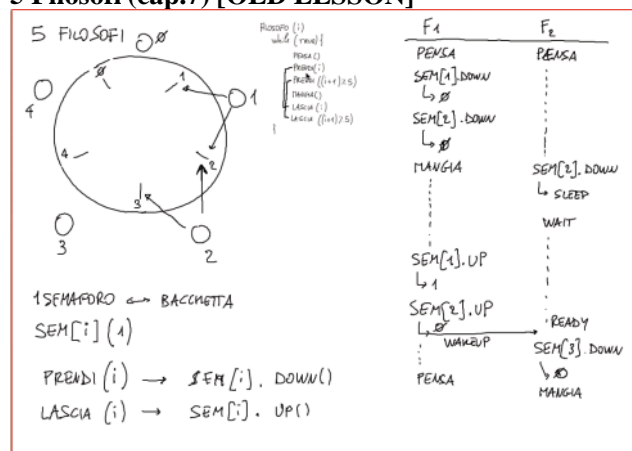 5 Filosofi (cap.7) [OLD LESSON]
5 FILOSOFI
0
0
1
1
2
2
3
3
4
4
FILOSOFO (i)
while (TRUE) {
PENSA()
PRENDI(i)
PRENDI ((i+1)%5)
MANGIA()
LASCIA (i)
LASCIA ((i+1)%5)
}
1 SEMAFORO ↔ BACCHETTA
SEM[i] (1)
PRENDI (i) → SEM[i]. DOWN()
LASCIA (i) → SEM[i]. UP()
F1
PENSA
SEM[1].DOWN
↳ 0
SEM[2].DOWN
↳ 0
MANGIA
SEM[1].UP
↳ 1
SEM[2].UP
↳ 0
WAKEUP
PENSA
F2
PENSA
SEM[2].DOWN
↳ SLEEP
WAIT
READY
SEM[3].DOWN
↳ 0
MANGIA